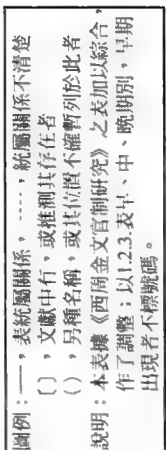 圖例：——，表統屬關係，……，統屬關係不清楚
〔〕，文獻中有，或推測其存在者
（），另種名稱，或其位置不確暫列於此者
說明：本表據《西周金文官制研究》之表加以綜合，
作了調整；以1.2.3.表早、中、晚期別，早期
出現者不標號碼。